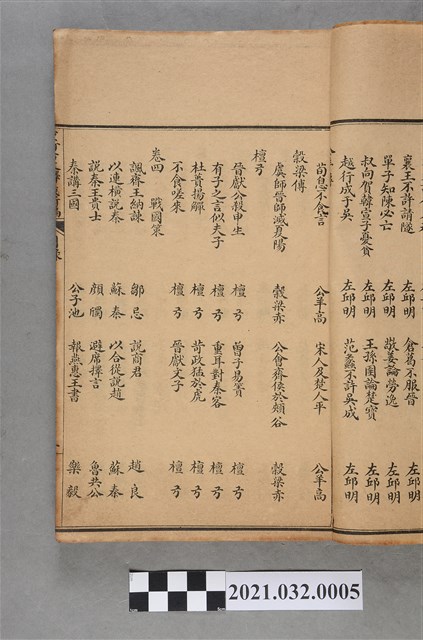 襄王不許請隧 左邱明 倉葛不服晉 左邱明
單子知陳必亡 左邱明 敬姜論勞逸 左邱明
叔向賀韓宣子憂貧 左邱明 王孫圉論楚寶 左邱明
越行成于吳 左邱明 范蠡不許吳成 左邱明
荀息不食言 公羊高 宋人及楚人平 公羊高
穀梁傳
虞師晉師滅夏陽 穀梁赤 公會齊侯於頰谷 穀梁赤
檀弓
晉獻公殺申生 檀弓 曾子易簀 檀弓
有子之言似夫子 檀弓 重耳對秦客 檀弓
杜蕢揚觶 檀弓 苛政猛於虎 檀弓
不食嗟來 檀弓 晉獻文子 檀弓
卷四 戰國策
諷齊王納諫 鄒忌 說商君 趙良
以連橫說秦 蘇秦 以合從說趙 蘇秦
說秦王貴士 顏斶 避席擇言 魯共公
秦講三國 公子池 報燕惠王書 樂毅
2021.032.0005